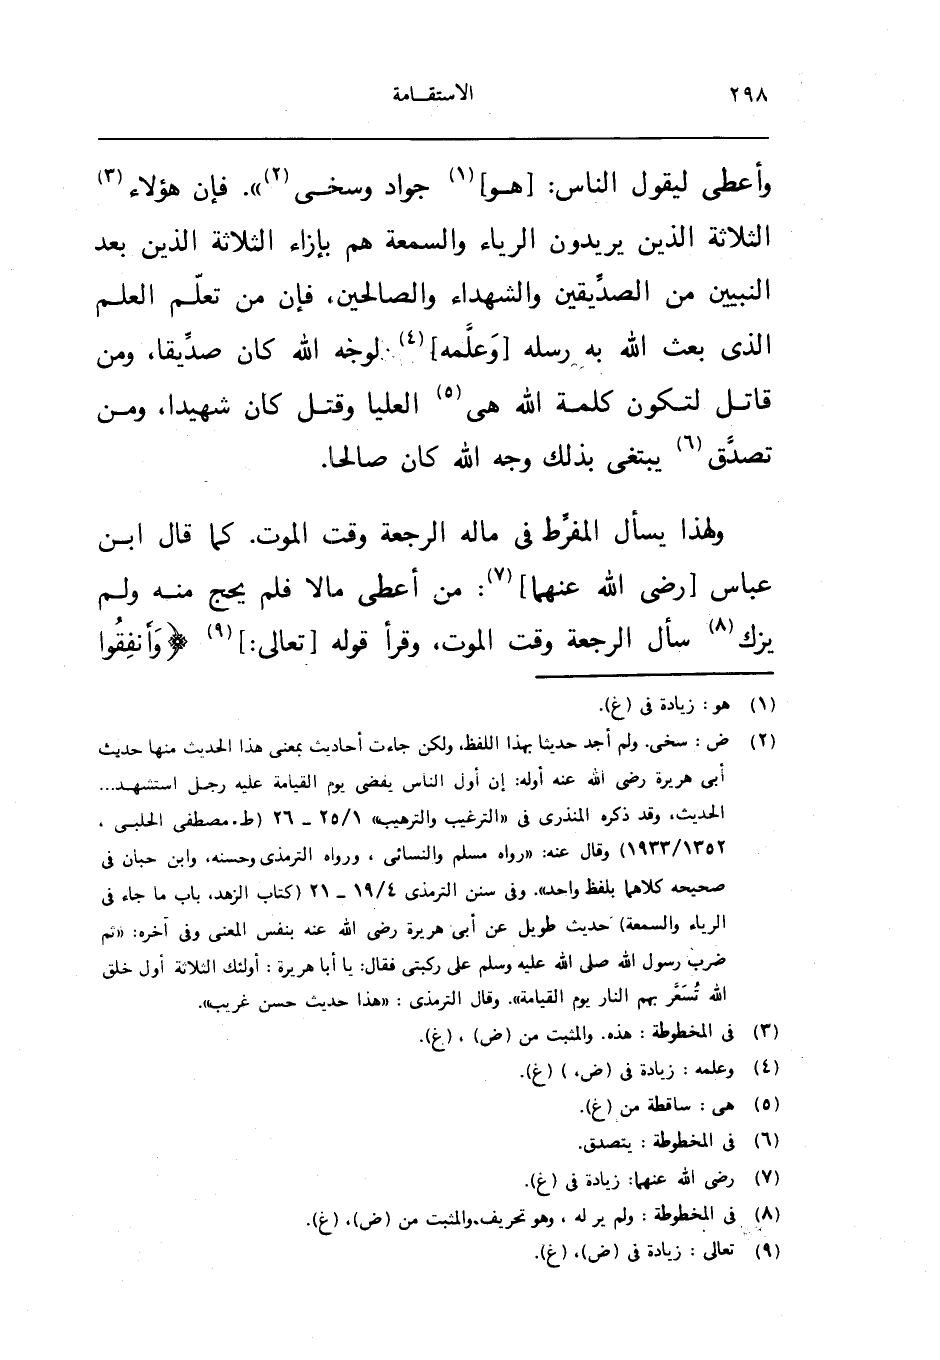 ٢٩٨ الاستقــامة
وأعطى ليقول الناس: [هـو]⁽١⁾ جواد وسخـى⁽٢⁾». فإن هؤلاء⁽٣⁾
الثلاثة الذين يريدون الرياء والسمعة هم بإزاء الثلاثة الذين بعد
النبيين من الصدِّيقين والشهداء والصالحين، فإن من تعلّم العلم
الذى بعث الله به رسله [وَعلَّمه]⁽٤⁾ لوجْه الله كان صدِّيقا، ومن
قاتـل لتـكون كلمـة الله هى⁽٥⁾ العليا وقتـل كان شهيدا، ومـن
تصدَّق⁽٦⁾ يبتغى بذلك وجه الله كان صالحا.
ولهذا يسأل المفرِّط فى ماله الرجعة وقت الموت. كما قال ابـن
عباس [رضى الله عنهما]⁽٧⁾: من أعطى مالا فلم يحج منـه ولـم
يزك⁽٨⁾ سأل الرجعة وقت الموت، وقرأ قوله [تعالى:]⁽٩⁾ ﴿وَأَنفِقُوا
(١) هو: زيادة فى (غ).
(٢) ض: سخى. ولم أجد حديثا بهذا اللفظ، ولكن جاءت أحاديث بمعنى هذا الحديث منها حديث
أبى هريرة رضى الله عنه أوله: إن أول الناس يقضى يوم القيامة عليه رجـل استشهـد...
الحديث، وقد ذكره المنذرى فى «الترغيب والترهيب» ٢٥/١ ـ ٢٦ (ط.مصطفى الحلبـى ،
١٩٣٣/١٣٥٢) وقال عنه: «رواه مسلم والنسائى ، ورواه الترمذى وحسنه، وابن حبان فى
صحيحه كلاهما بلفظ واحد». وفى سنن الترمذى ١٩/٤ ـ ٢١ (كتاب الزهد، باب ما جاء فى
الرياء والسمعة) حديث طويل عن أبى هريرة رضى الله عنه بنفس المعنى وفى آخره: «ثم
ضرب رسول الله صلى الله عليه وسلم على ركبتى فقال: يا أبا هريرة : أولئك الثلاثة أول خلق
الله تُسَعَّر بهم النار يوم القيامة». وقال الترمذى : «هذا حديث حسن غريب».
(٣) فى المخطوطة : هذه. والمثبت من (ض) ، (غ).
(٤) وعلمه : زيادة فى (ض، ) (غ).
(٥) هى : ساقطة من (غ).
(٦) فى المخطوطة : يتصدق.
(٧) رضى الله عنهما: زيادة فى (غ).
(٨) فى المخطوطة : ولم ير له ، وهو تحريف.والمثبت من (ض)، (غ).
(٩) تعالى : زيادة فى (ض)، (غ).